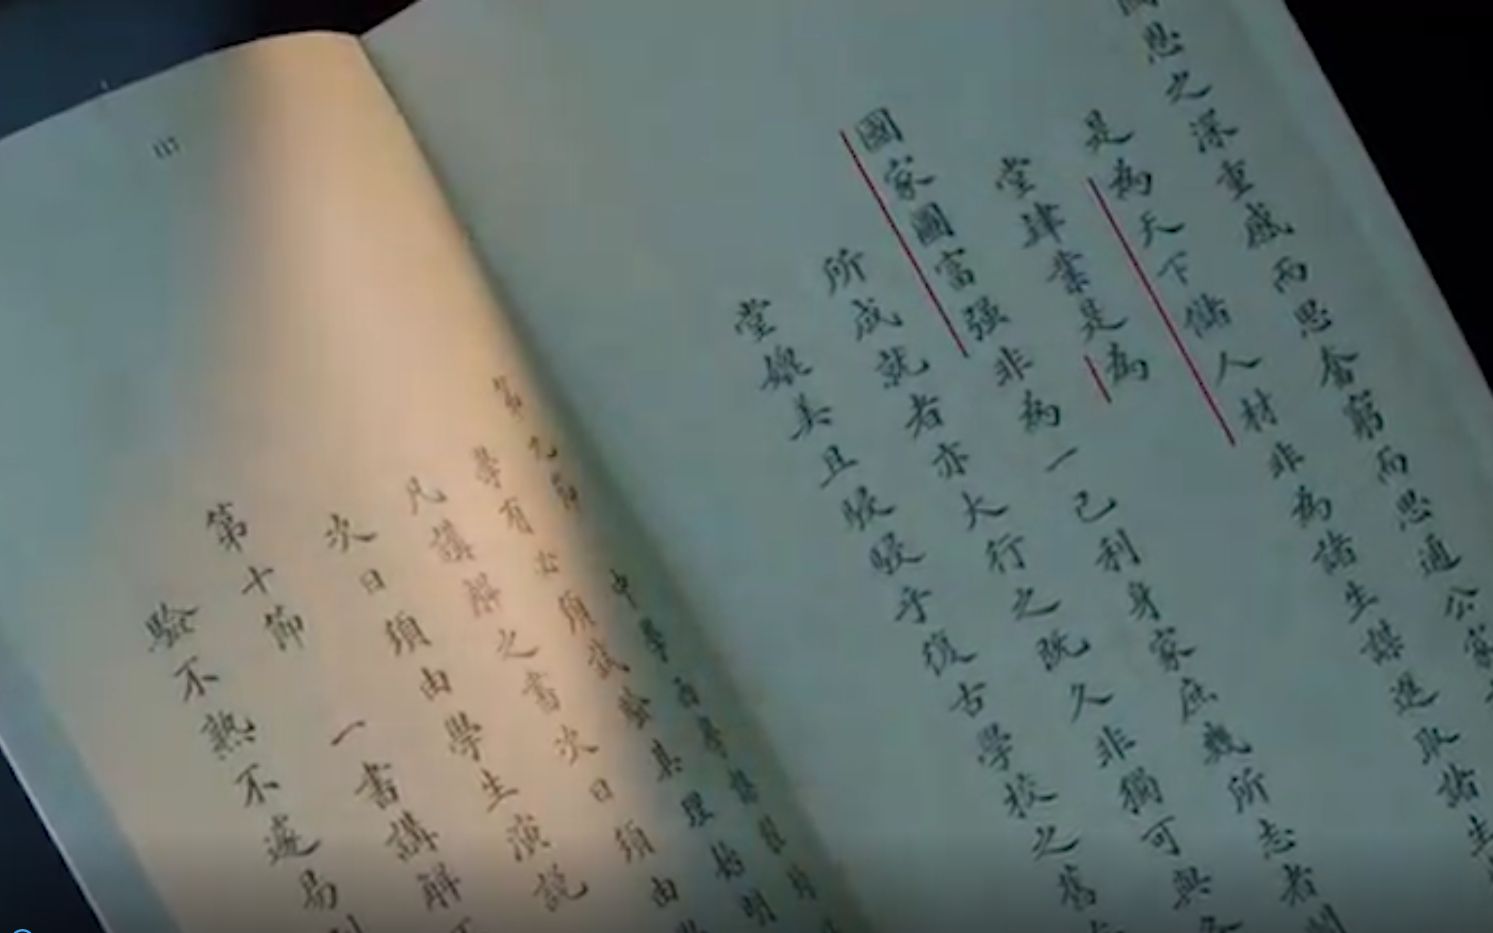 國恩之深重感而思奮窮而思通公家
是為天下儲人材非為諸生謀進取諸生
堂肄業是為
國家圖富强非為一己利身家庶幾所志者
所成就者亦大行之既久非獨可與各
堂媲美且駸駸乎復古學校之舊
117
第九節 中學西學講
學有必須試驗其理始明
凡講解之書次日須由學
次日須由學生演説
第十節 一書講解
驗不熟不遽易